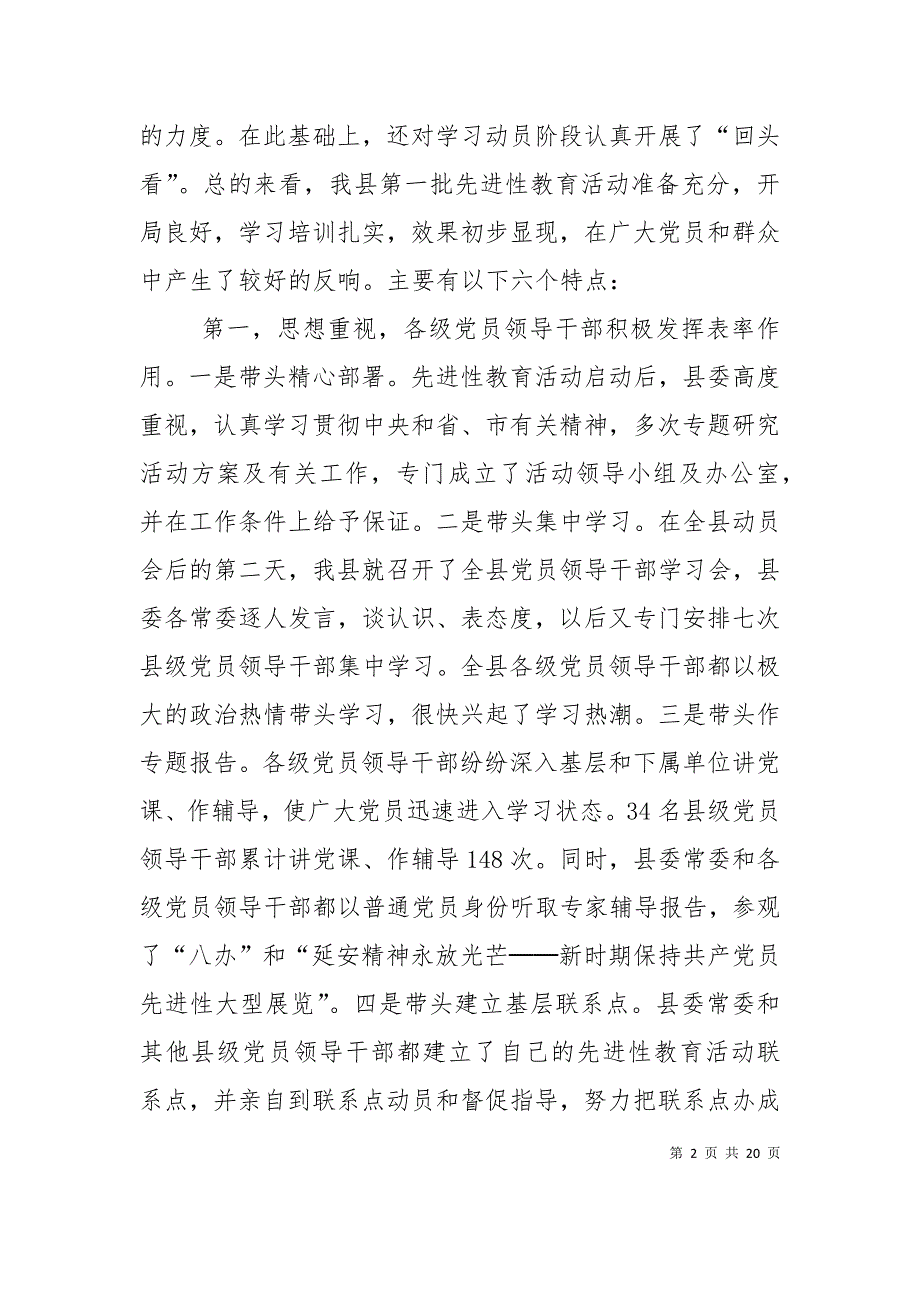 的力度。在此基础上，还对学习动员阶段认真开展了“回头
看”。总的来看，我县第一批先进性教育活动准备充分，开
局良好，学习培训扎实，效果初步显现，在广大党员和群众
中产生了较好的反响。主要有以下六个特点：
第一，思想重视，各级党员领导干部积极发挥表率作
用。一是带头精心部署。先进性教育活动启动后，县委高度
重视，认真学习贯彻中央和省、市有关精神，多次专题研究
活动方案及有关工作，专门成立了活动领导小组及办公室，
并在工作条件上给予保证。二是带头集中学习。在全县动员
会后的第二天，我县就召开了全县党员领导干部学习会，县
委各常委逐人发言，谈认识、表态度，以后又专门安排七次
县级党员领导干部集中学习。全县各级党员领导干部都以极
大的政治热情带头学习，很快兴起了学习热潮。三是带头作
专题报告。各级党员领导干部纷纷深入基层和下属单位讲党
课、作辅导，使广大党员迅速进入学习状态。34 名县级党员
领导干部累计讲党课、作辅导 148 次。同时，县委常委和各
级党员领导干部都以普通党员身份听取专家辅导报告，参观
了“八办”和“延安精神永放光芒——新时期保持共产党员
先进性大型展览”。四是带头建立基层联系点。县委常委和
其他县级党员领导干部都建立了自己的先进性教育活动联
系点，并亲自到联系点动员和督促指导，努力把联系点办成
第 2 页 共 20 页